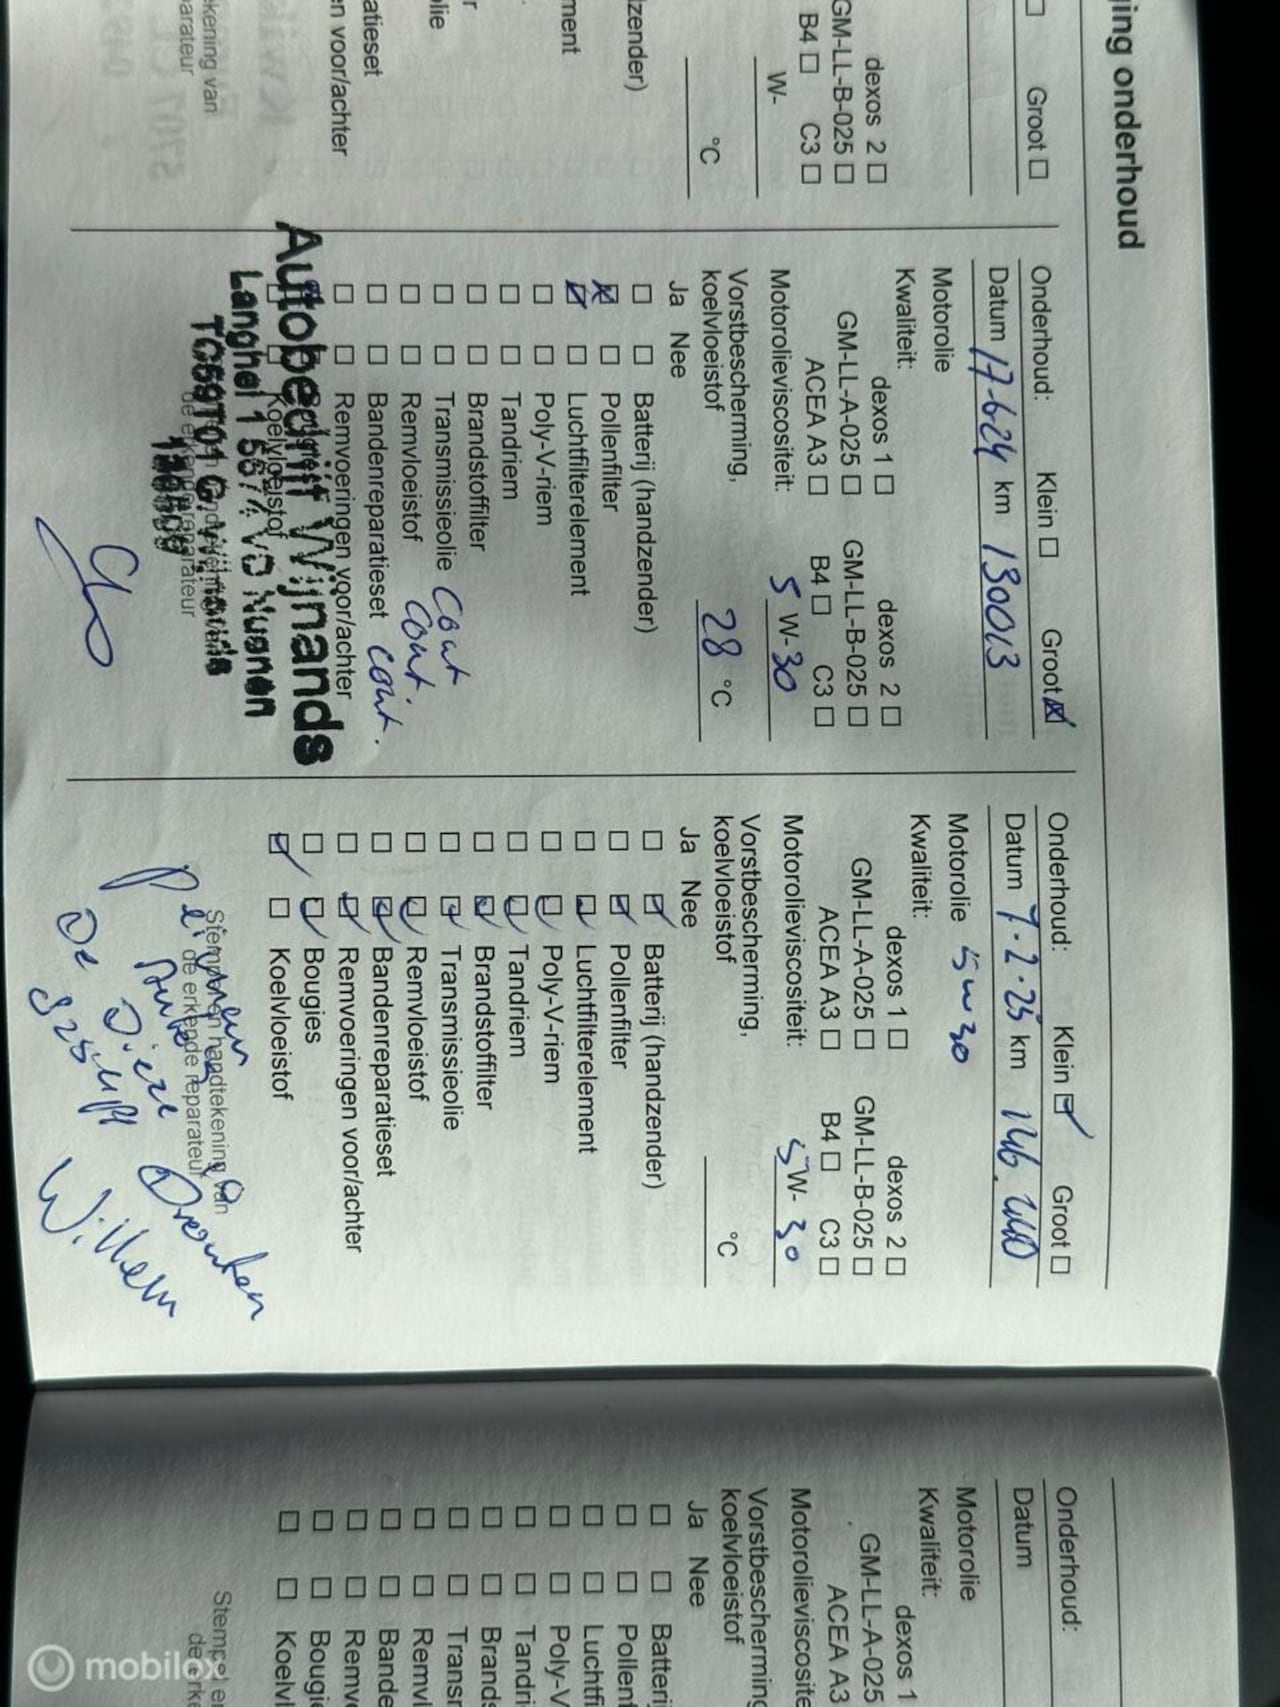 ing onderhoud
Groot
dexos 2
GM-LL-B-025
B4 C3
W-
°C
zender)
ment
r
lie
atieset
en voor/achter
ekening van
parateur
Onderhoud: Klein Groot
Datum 17-6-24 km 130013
Motorolie
Kwaliteit: dexos 1 dexos 2
GM-LL-A-025 GM-LL-B-025
ACEA A3 B4 C3
Motorolieviscositeit: 5 W-30
Vorstbescherming,
koelvloeistof 28 °C
Ja Nee
Batterij (handzender)
Pollenfilter
Luchtfilterelement
Poly-V-riem
Tandriem
Brandstoffilter
Transmissieolie Cont
Remvloeistof Cont.
Bandenreparatieset cont.
Remvoeringen voor/achter
Koelvloeistof
Autobedrijf Wijnands
Langhel 1 Nuenen
de erkende reparateur
Onderhoud: Klein Groot
Datum 7-2-25 km
Motorolie 5w30
Kwaliteit: dexos 1 dexos 2
GM-LL-A-025 GM-LL-B-025
ACEA A3 B4 C3
Motorolieviscositeit: 5 W-30
Vorstbescherming,
koelvloeistof °C
Ja Nee
Batterij (handzender)
Pollenfilter
Luchtfilterelement
Poly-V-riem
Tandriem
Brandstoffilter
Transmissieolie
Remvloeistof
Bandenreparatieset
Remvoeringen voor/achter
Bougies
Koelvloeistof
Stempel en handtekening van
de erkende reparateur
De Dronten
Willem
Onderhoud:
Datum
Motorolie
Kwaliteit: dexos 1
GM-LL-A-025
ACEA A3
Motorolieviscosite
Vorstbescherming
koelvloeistof
Ja Nee
Batterij
Pollen
Luchtfi
Poly-V
Tandri
Brands
Transr
Remvl
Bande
Remvo
Bougie
Koelvl
Stempel en
de erke
mobilox